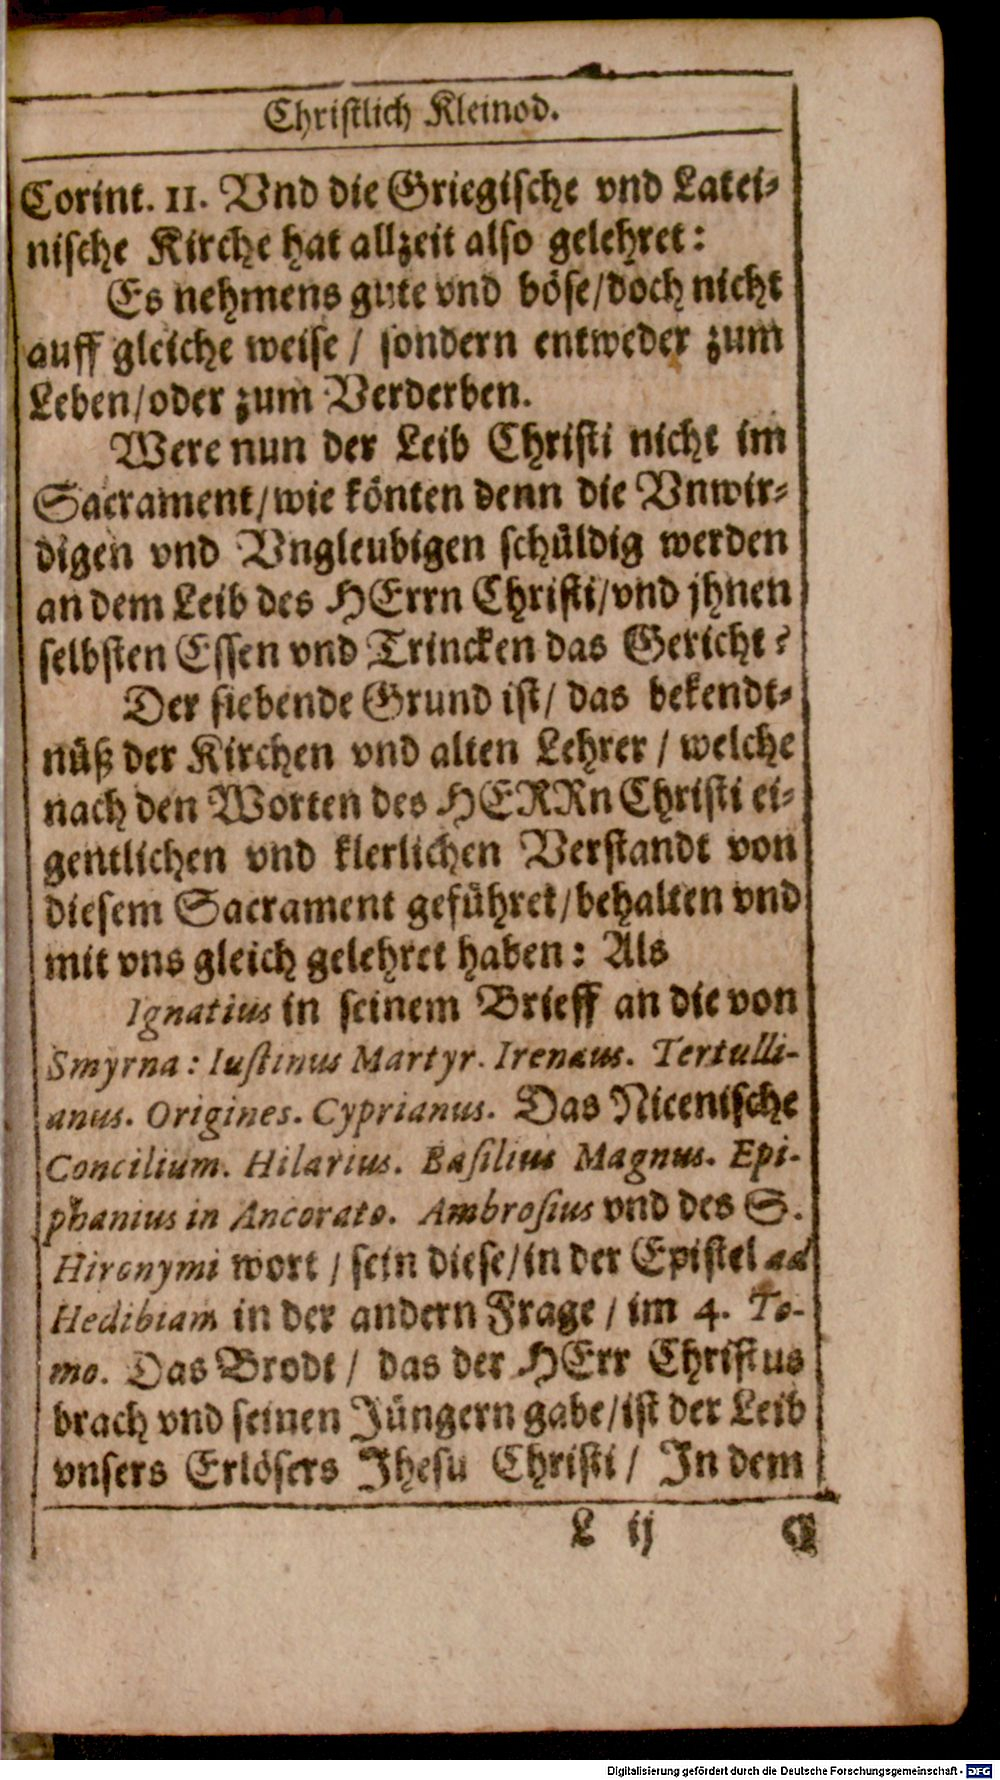 Christlich Kleinod.
Corint. 11. Vnd die Griegische vnd Latei-
nische Kirche hat allzeit also gelehret:
Es nehmens gute vnd böse/doch nicht
auff gleiche weise / sondern entweder zum
Leben/oder zum Verderben.
Were nun der Leib Christi nicht im
Sacrament/wie könten denn die Vnwir-
digen vnd Vngleubigen schüldig werden
an dem Leib des HErrn Christi/vnd jhnen
selbsten Essen vnd Trincken das Gericht?
Der siebende Grund ist/ das bekendt-
nüß der Kirchen vnd alten Lehrer / welche
nach den Worten des HERRn Christi ei-
gentlichen vnd klerlichen Verstandt von
diesem Sacrament geführet/behalten vnd
mit vns gleich gelehret haben: Als
Ignatius in seinem Brieff an die von
Smyrna: Iustinus Martyr. Irenæus. Tertulli-
anus. Origines. Cyprianus. Das Nicenische
Concilium. Hilarius. Basilius Magnus. Epi-
phanius in Ancorato. Ambrosius vnd des S.
Hieronymi wort / sein diese/in der Epistel ad
Hedibiam in der andern Frage / im 4. To-
mo. Das Brodt / das der HErr Christus
brach vnd seinen Jüngern gabe/ist der Leib
vnsers Erlösers Jhesu Christi / In dem
L ij
Digitalisierung gefördert durch die Deutsche Forschungsgemeinschaft - DFG